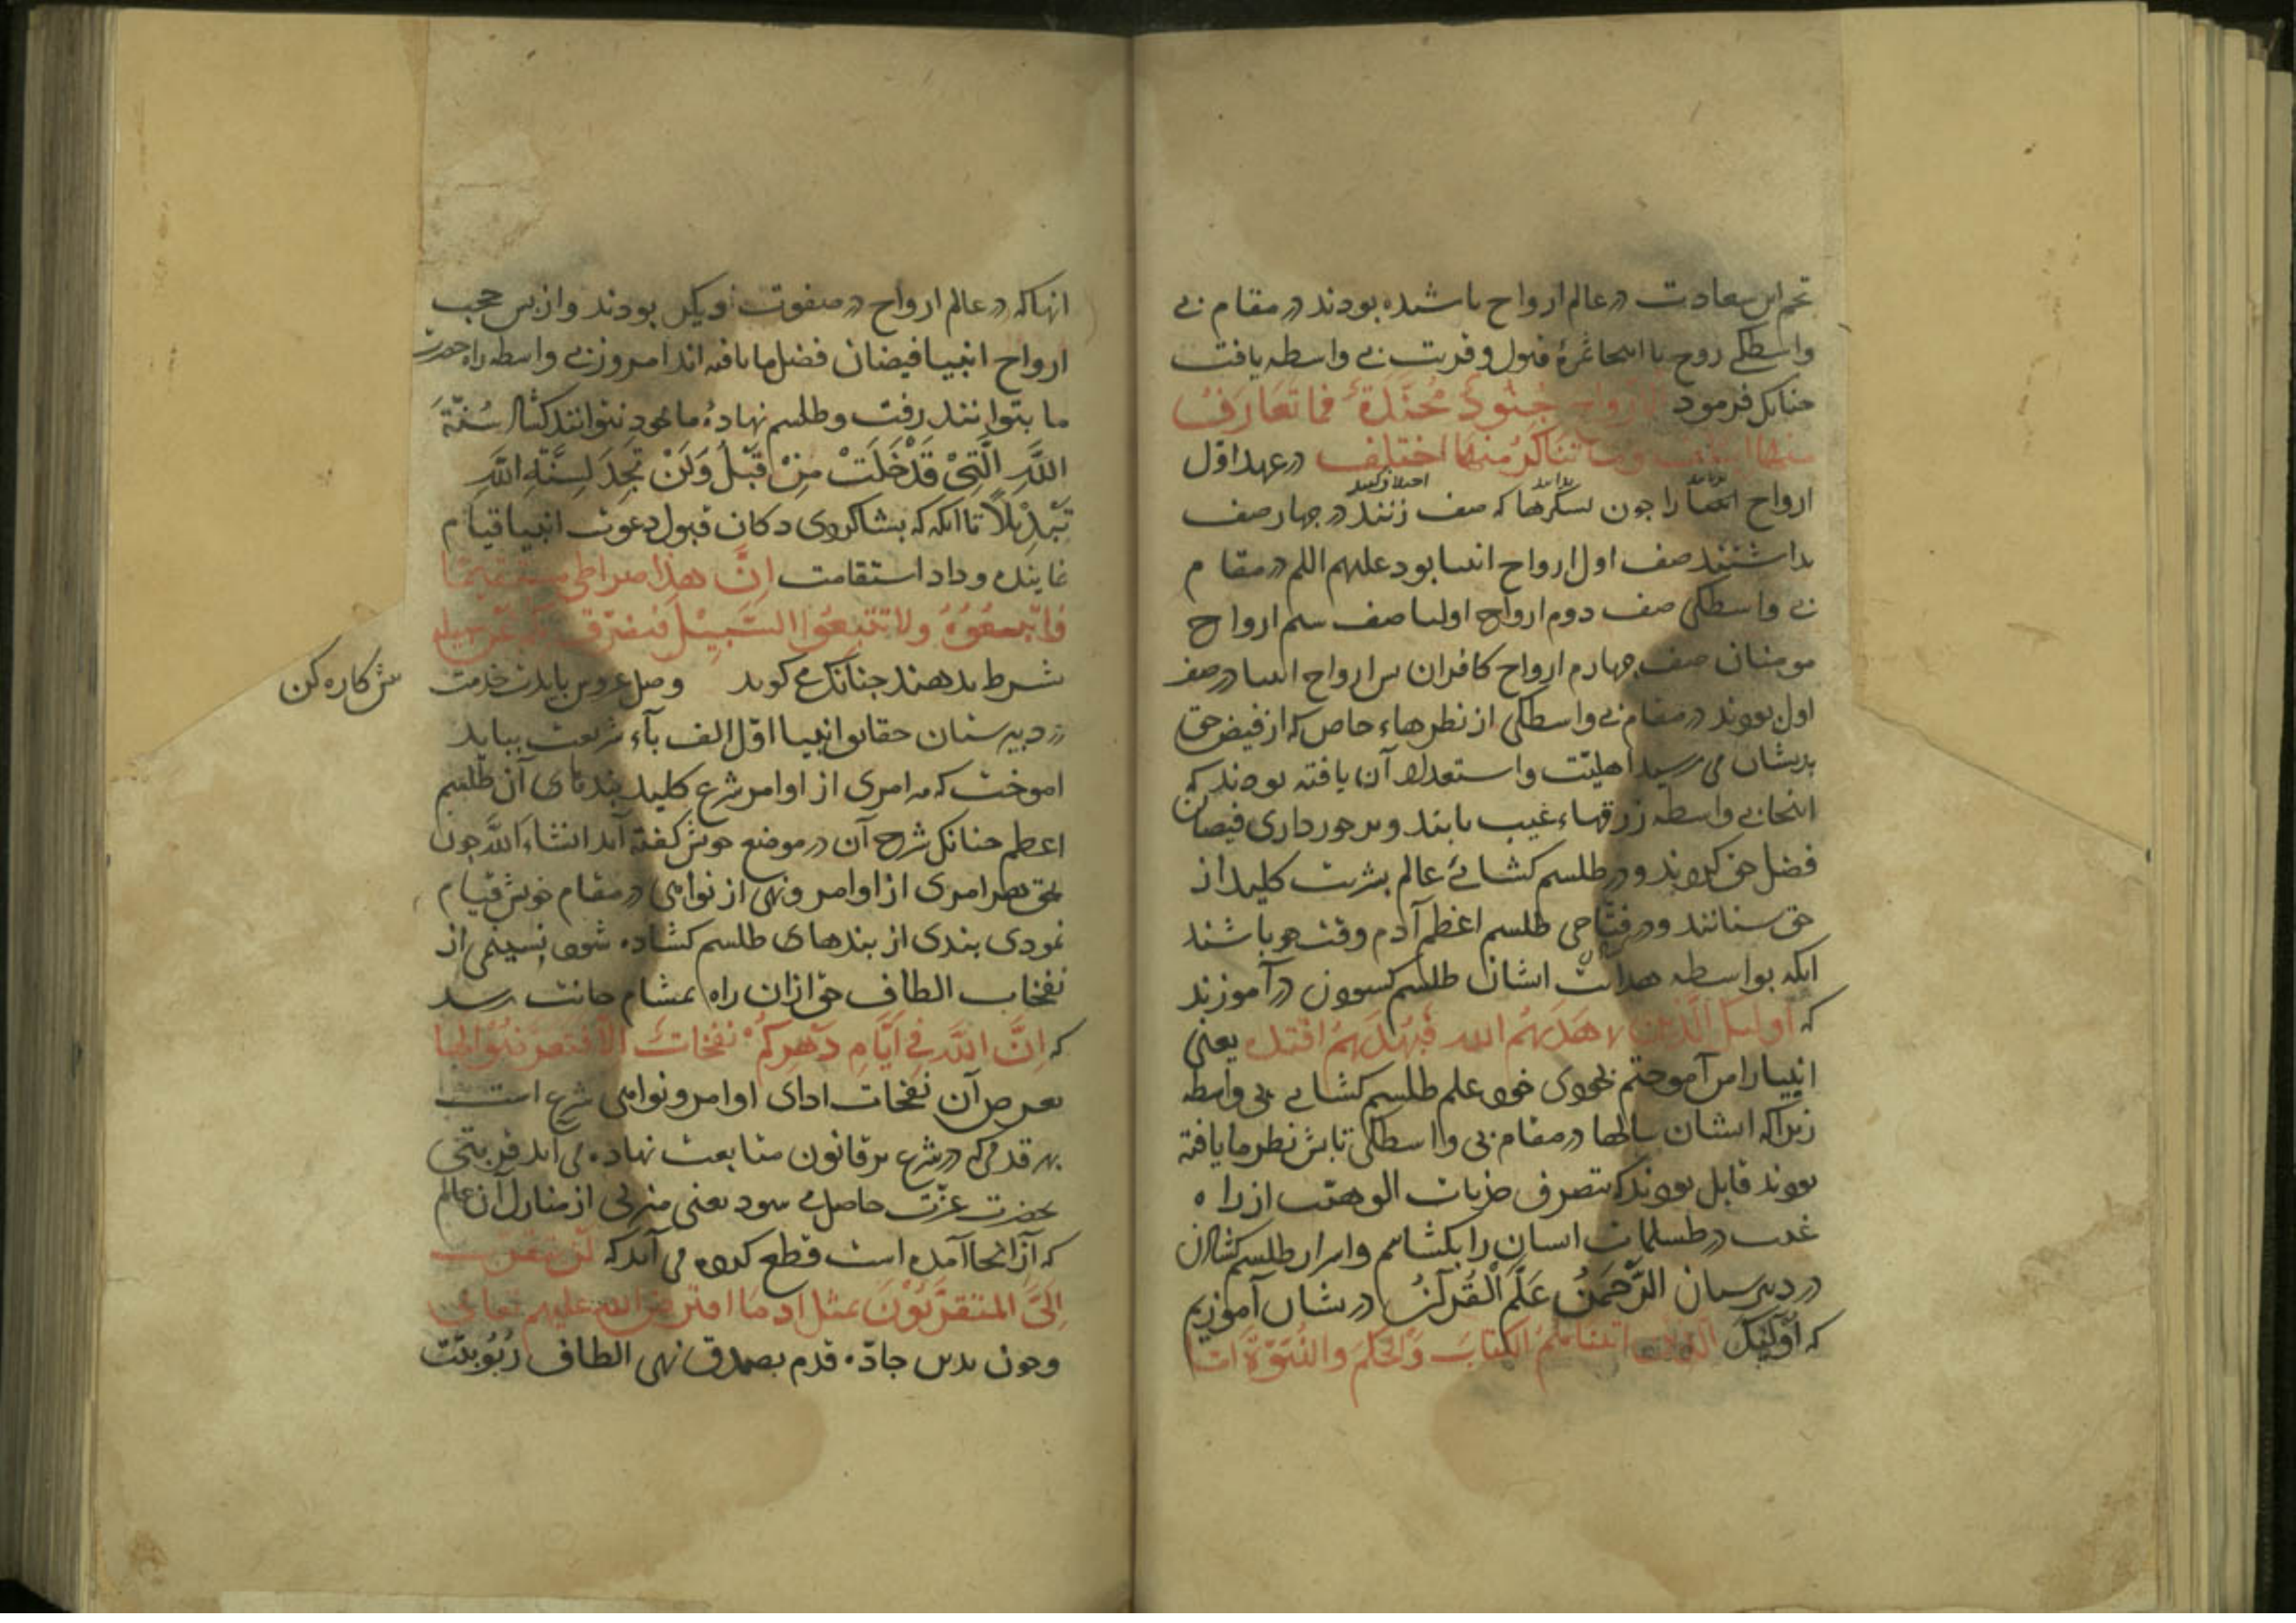 تخم این سعادت در عالم ارواح پاشیده بودند در مقام بی
واسطکی روح تا اینجا ثمرهٔ قبول و قربت بی واسطه یافت
جنانک فرمود الارواح جُنُودٌ مُجَنَّدَةٌ فما تَعَارَفُ
منها ایتلف وما تَنَاکَرُ منها اختلف در عهد اوّل
ارواح انسان را جون لشکرها که صف زنند در جهار صف
بداشتند صف اول ارواح انبیا بود علیهم السلم در مقام
بی واسطکی صف دوم ارواح اولیا صف سیم ارواح
مومنان صف جهارم ارواح کافران بس ارواح انبیا در صف
اول بودند در مقام بی واسطکی از نظرهاء خاص که از فیض حق
بدیشان می رسید اهلیّت و استعداد آن یافته بودند که
اینجا بی واسطه زرقهاء غیب یابند و برخورداری فیضان
فضل حق کردند و در طلسم کشائے عالم بشریت کلید از
حق ستانند و در فتّاحی طلسم اعظم آدم وقت خو باشند
انکه بواسطه هدایت اشان طلسم کشودن درآموزند
که اولیک الّذین هَدَیهُم الله فَبِهُدَیهُم اقتده یعنی
انبیا را من آموختم بخودی خود علم طلسم کشایے بی واسطه
زیراکه ایشان سالها در مقام بی واسطکی تابش نظر ما یافته
بودند قابل بودند که بتصرف جذبات الوهیّت از راه
غیب در طسلمات انسان را بکشاییم و اسرار طلسم کشادن
در دبیرستان الرَّحْمٰنُ عَلَّمَ الْقُرآنَ در یشان آموزیم
که اُولٰئِکَ الذین اتیناهُمُ الکتابَ وَالحُکمَ والنُّبُوَّةَ امّا
انهاکه در عالم ارواح در صفوت دیکر بودند و از بس حجب
ارواح انبیا فیضان فضل ما یافته اند امروز بی واسطه راه حضرت
ما بتوانند رفت و طلسم نهادهٔ ما بخود نتوانند کشاد سُنَّةَ
اللَّهِ الَّتِیْ قَدْ خَلَتْ مِنْ قَبْلُ وَلَنْ تَجِدَ لِسُنَّةِ اللَّهِ
تَبْدِیْلاً تا انکه که بشاکردی دکان قبول دعوت انبیا قیام
نمایند و داد استقامت اِنَّ هذا صراطی مستقیمًا
فَاتَّبِعُوْهُ ولا تتبعُوا السُّبُلَ فتفرّق بکم عن سبیله
شرط بدهند جنانک می کوید وصل عروس بایدت خدمت
ش کاره کن
در دبیرستان حقایق انبیا اوّل الف باء شریعت بباید
اموخت که هر امری از اوامر شرع کلید بندهای آن طلسم
اعظم جنانک شرح آن در موضع خویش کفته آید انشاء الله جون
بحق هر امری از اوامر و نهی از نواهی در مقام خویش قیام
نمودی بندی از بندهای طلسم کشاده شود نسیمی از
نفخات الطاف حق ازان راه بمشام جانت رسد
که اِنَّ اللّهَ فِی اَیَّامِ دَهْرِکُمْ نَفَخاتٌ اَلا فَتَعَرَّضُوْا لها
تعرض آن نفخات ادای اوامر و نواهی شرع است
بهر قدمی که در شرع بر قانون متابعت نهاده می اید قربتی
بحضرت عزّت حاصل می شود یعنی منزلی از منازل آن عالم
که از انجا آمده است قطع کرده می آید که لَن یتقرّب
اِلَیَّ المتقرِّبُوْنَ بمثل اد ما افترض الله علیهم تعالی
وجون بدین جادّه قدم بصدق نهی الطاف رُبُوبیّت